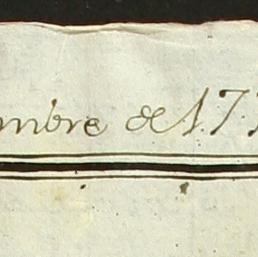 mbre de 177